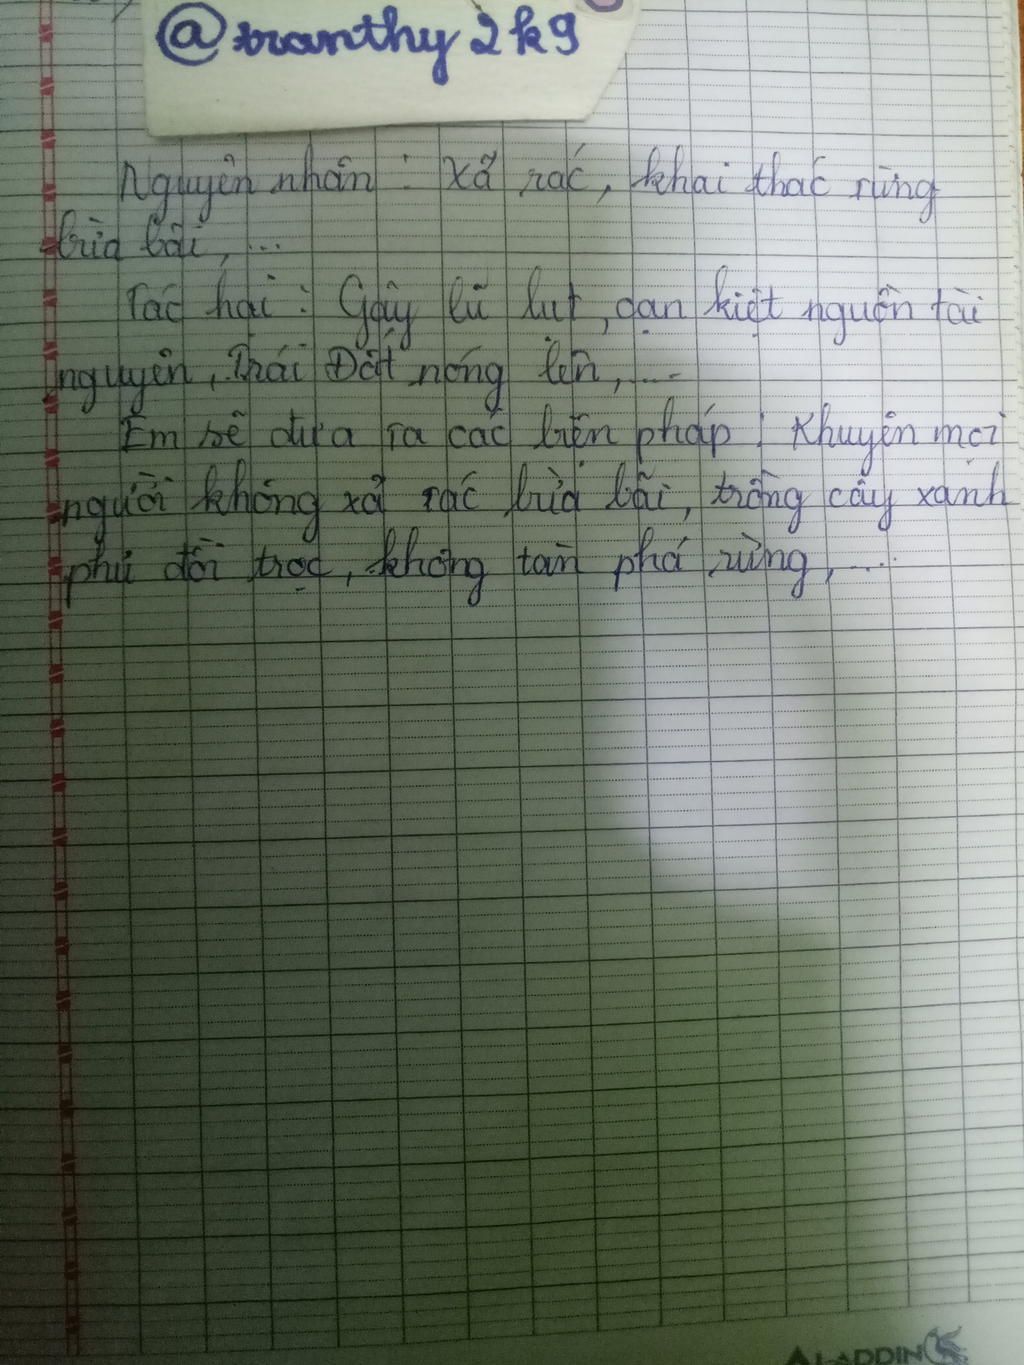 @tranthy2k9
Nguyên nhân : Xả rác, khai thác rừng
bừa bãi, ...
Tác hại : Gây lũ lụt, cạn kiệt nguồn tài
nguyên, Trái Đất nóng lên, ...
Em sẽ đưa ra các biện pháp : Khuyên mọi
người không xả rác bừa bãi, trồng cây xanh
phủ đồi trọc, không tàn phá rừng, ...
ALADDIN